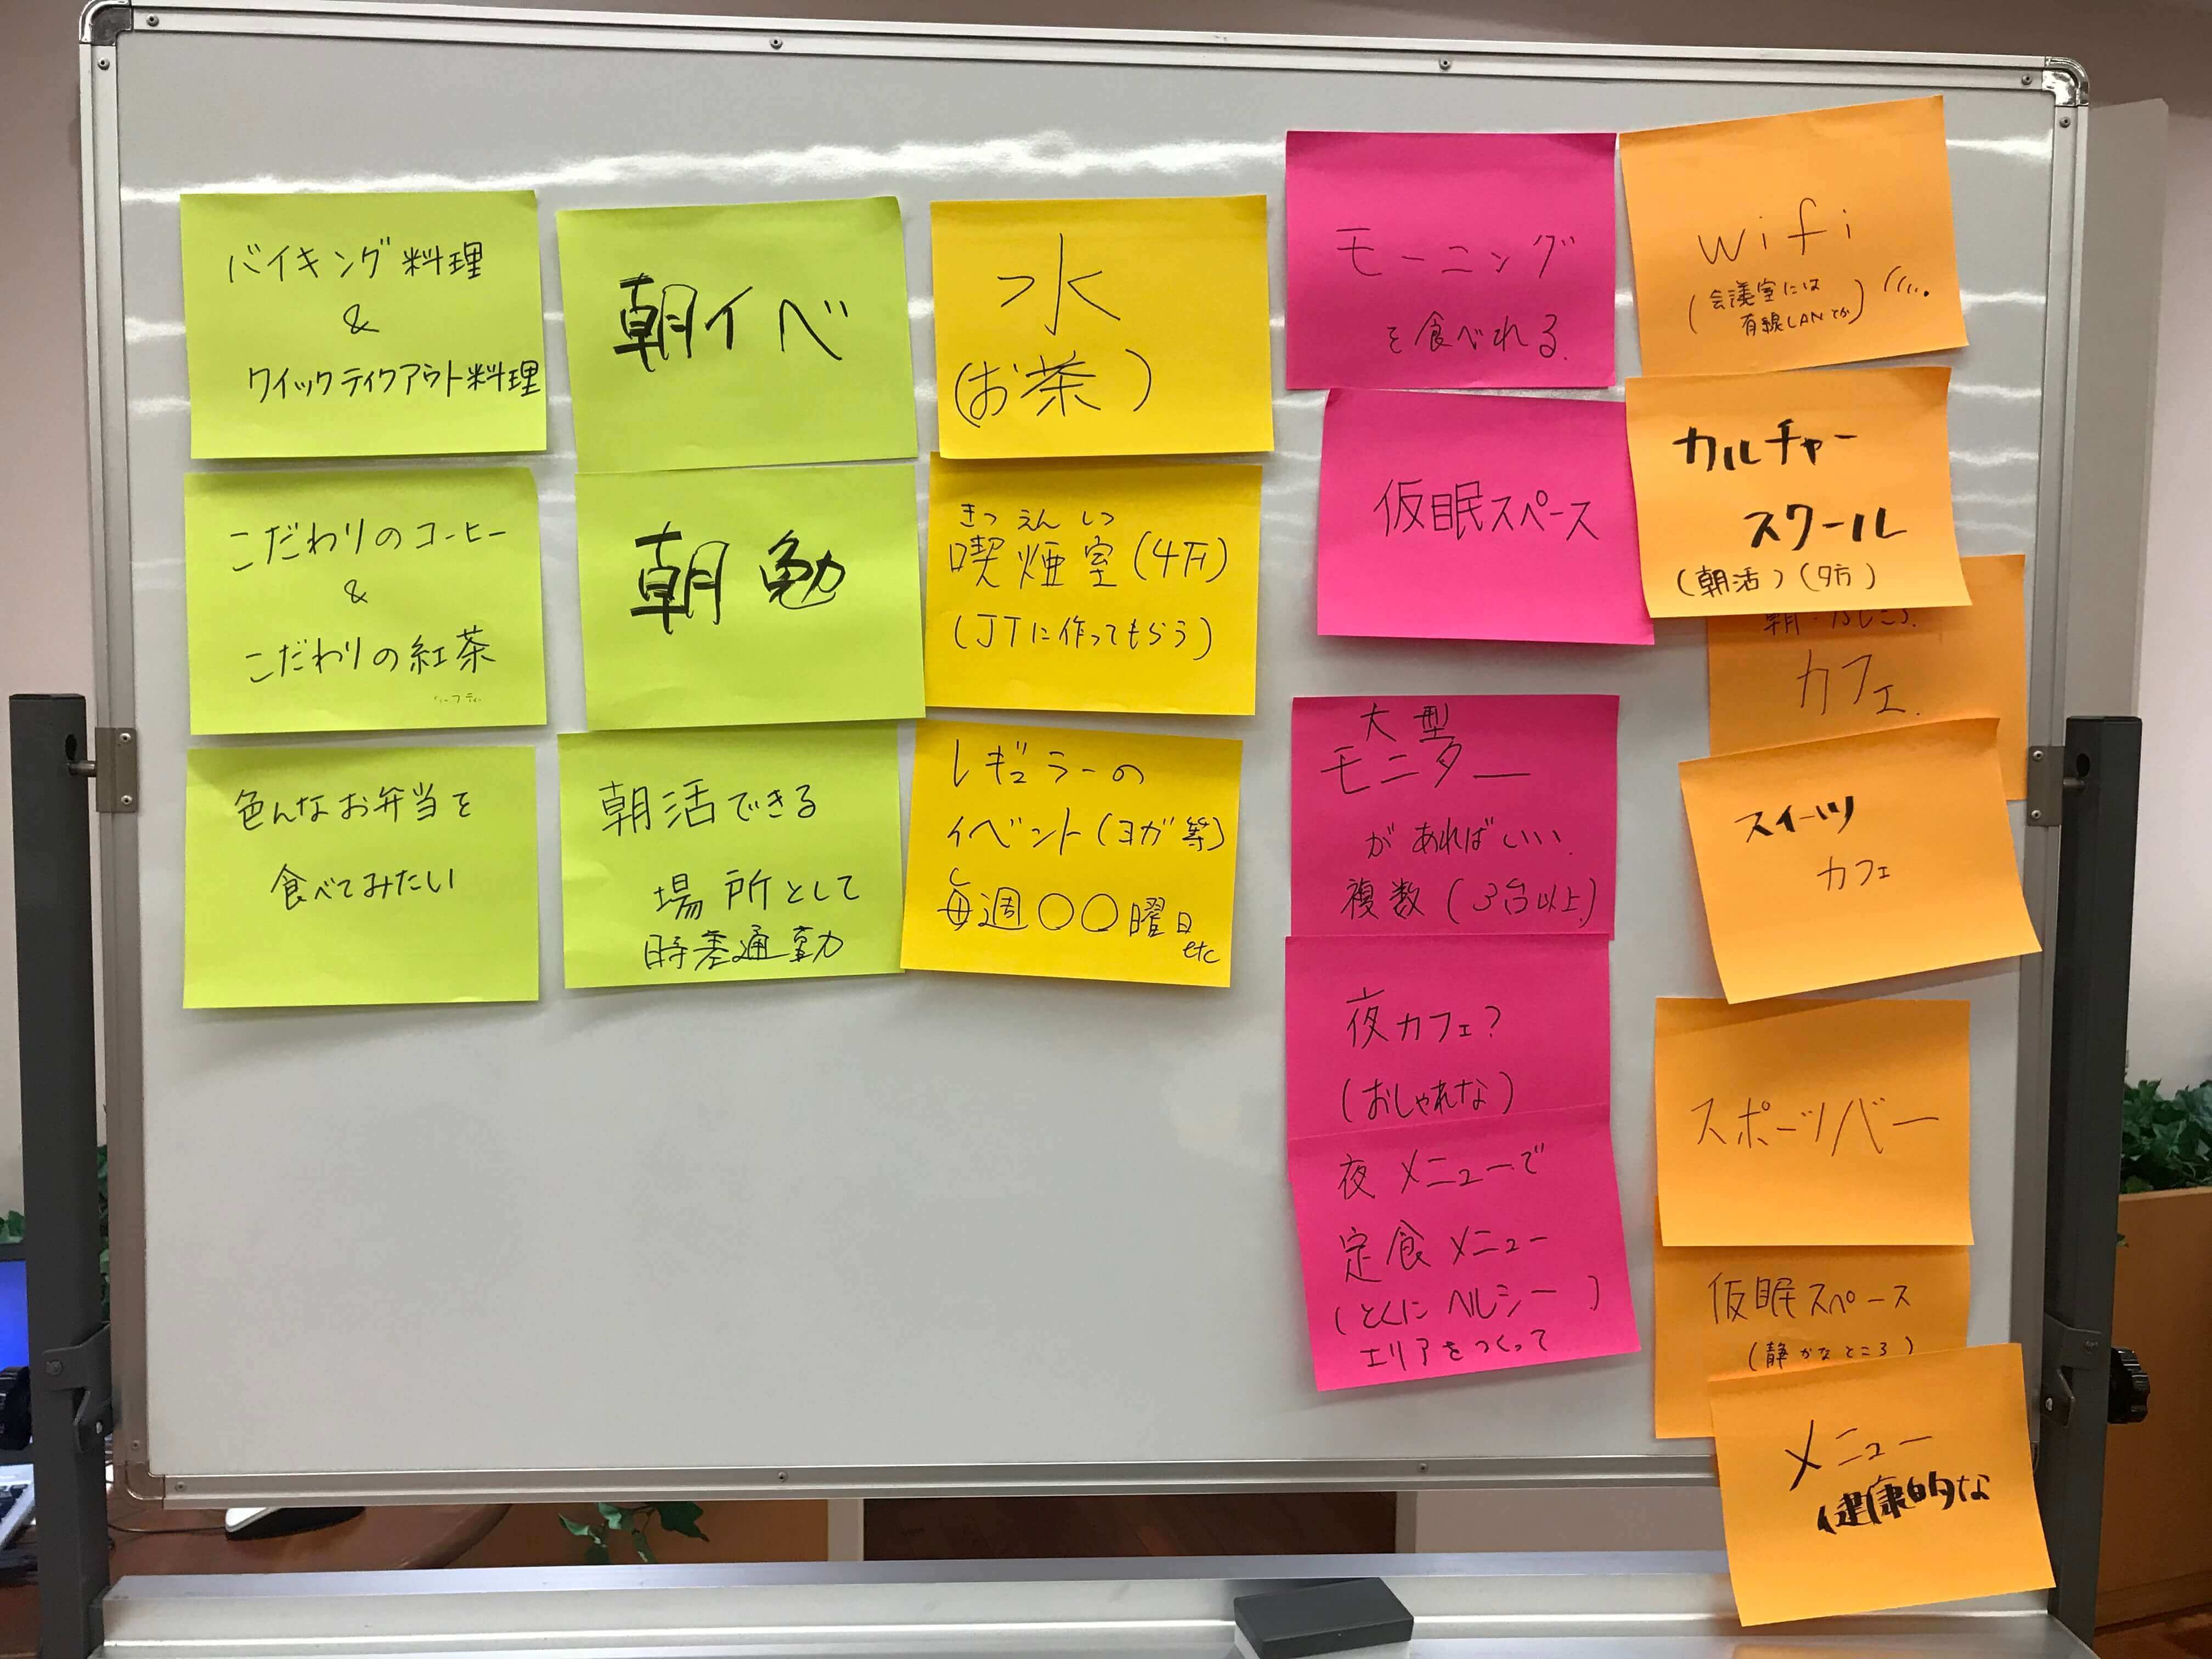 バイキング料理
&
クイックテイクアウト料理
こだわりのコーヒー
&
こだわりの紅茶
色んなお弁当を
食べてみたい
朝イベ
朝勉
朝活できる
場所として
時差通勤
水
(お茶)
きつえんしつ
喫煙室(4F)
(JTに作ってもらう)
レギュラーの
イベント(ヨガ等)
毎週〇〇曜日
etc
モーニング
を食べれる.
仮眠スペース
大型
モニター
があればいい.
複数(3台以上)
夜カフェ?
(おしゃれな)
夜メニューで
定食メニュー
(とくにヘルシー)
エリアをつくって
wifi
(会議室には
有線LANとか)
カルチャー
スクール
(朝活)(夕方)
カフェ.
スイーツ
カフェ
スポーツバー
仮眠スペース
(静かなところ)
メニュー
健康的な